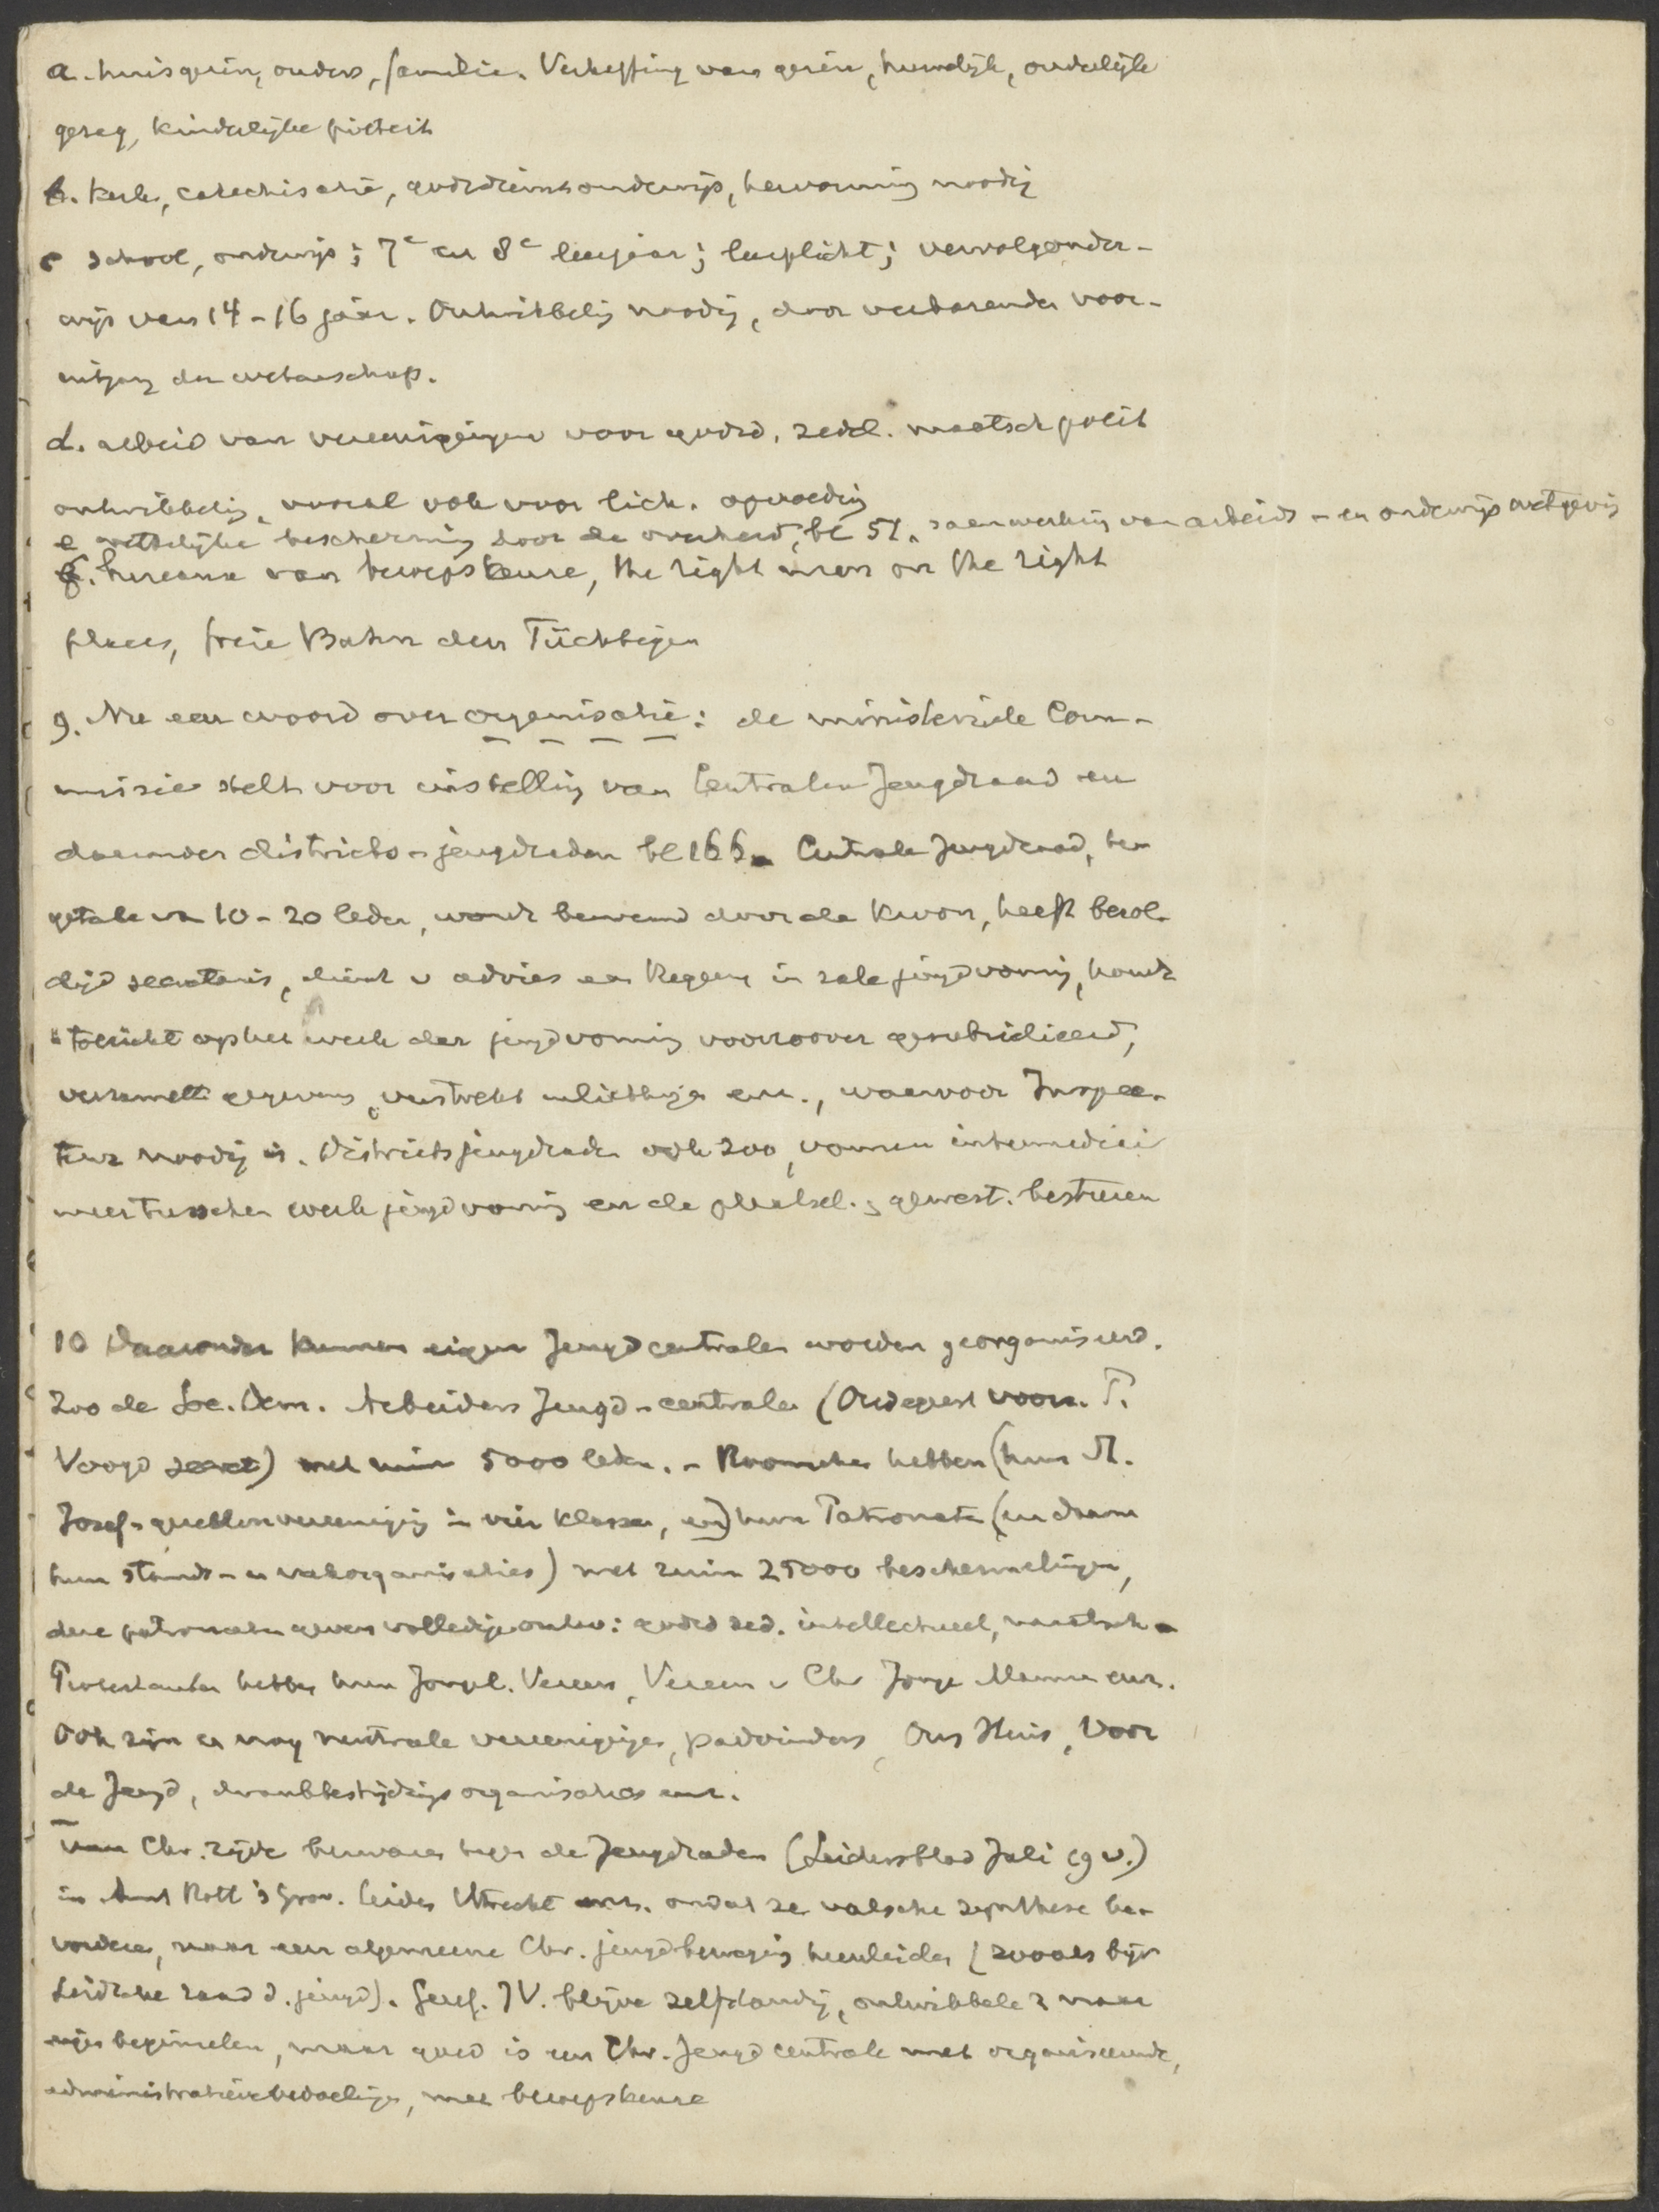 a. huisgezin, ouders, familie. Verheffing van gezin, huwelijk, ouderlijk
gezag, kinderlijke piëteit
b. kerk, catechisatie, godsdienstonderwijs, hervorming noodig
c school, onderwijs; 7e en 8e leerjaar; leerplicht; vervolgonder-
wijs van 14-16 jaar. Onmisbelig noodig, door verbazende voor-
uitgang der wetenschap.
d. arbeid van vereenigingen voor godsd. zedel. maatsch polit
ontwikkeling, vooral ook voor lich. opvoeding
e wettelijke bescherming door de overheid, bl 51. samenwerking van arbeids- en onderwijs wetgeving
f. bureaux van beroepskeuze, the right man on the right
place, freie Bahn den Tüchtigen
9. Nu een woord over organisatie: de ministerieele Com-
missie stelt voor instelling van Centralen Jeugdraad en
daaronder districts-jeugdraden bl 166. Centrale Jeugdraad, ten
getale van 10-20 leden, wordt benoemd door de Kroon, heeft bezol-
digd secretaris, dient v advies aan Regeering in zake jeugdvorming, houdt
toezicht op het werk der jeugdvorming voorzoover gesubsidieerd,
verzamelt gegevens, verstrekt inlichtingen enz., waarvoor Inspec-
teur noodig is. Districtsjeugdraden ook zoo, vormen intermediair
tusschen werk jeugdvorming en de plaatsel. & gewest. besturen
10 Daaronder kunnen eigen Jeugdcentralen worden georganiseerd.
Zoo de Soc. Dem. Arbeiders Jeugd-centrale (Oudegeest voorz.
Voogd secret) met ruim 5000 leden. - Roomschen hebben (hun St.
Josef-gezellenvereeniging in vier klassen, en) hun Patronaten (en daarna
hun stands- en vakorganisaties) met ruim 25000 beschermelingen,
deze patronaten geven volledige ontw: godsd zed. intellectueel, maatsch -
Protestanten hebben hun Jongel. Vereen, Vereen v Chr Jonge Mannen enz.
Ook zijn er nog neutrale vereenigingen, padvinders, Ons Huis, Voor
de Jeugd, drankbestrijdings organisaties enz.
Van Chr. zijde bezwaren tegen de Jeugdraden (Leidersblad Juli 19 v.)
in Amst Rott 's Grav. Leiden Utrecht enz. omdat ze valsche synthese be-
vorderen, naar een algemeene Chr. jeugdbeweging heenleiden (zooals bijv
Leidsche raad d. jeugd). Geref. JV. blijve zelfstandig, ontwikkele z naar
eigen beginselen, maar goed is een Chr. Jeugdcentrale met organiseerende,
administratieve bedoelingen, met beroepskeuze